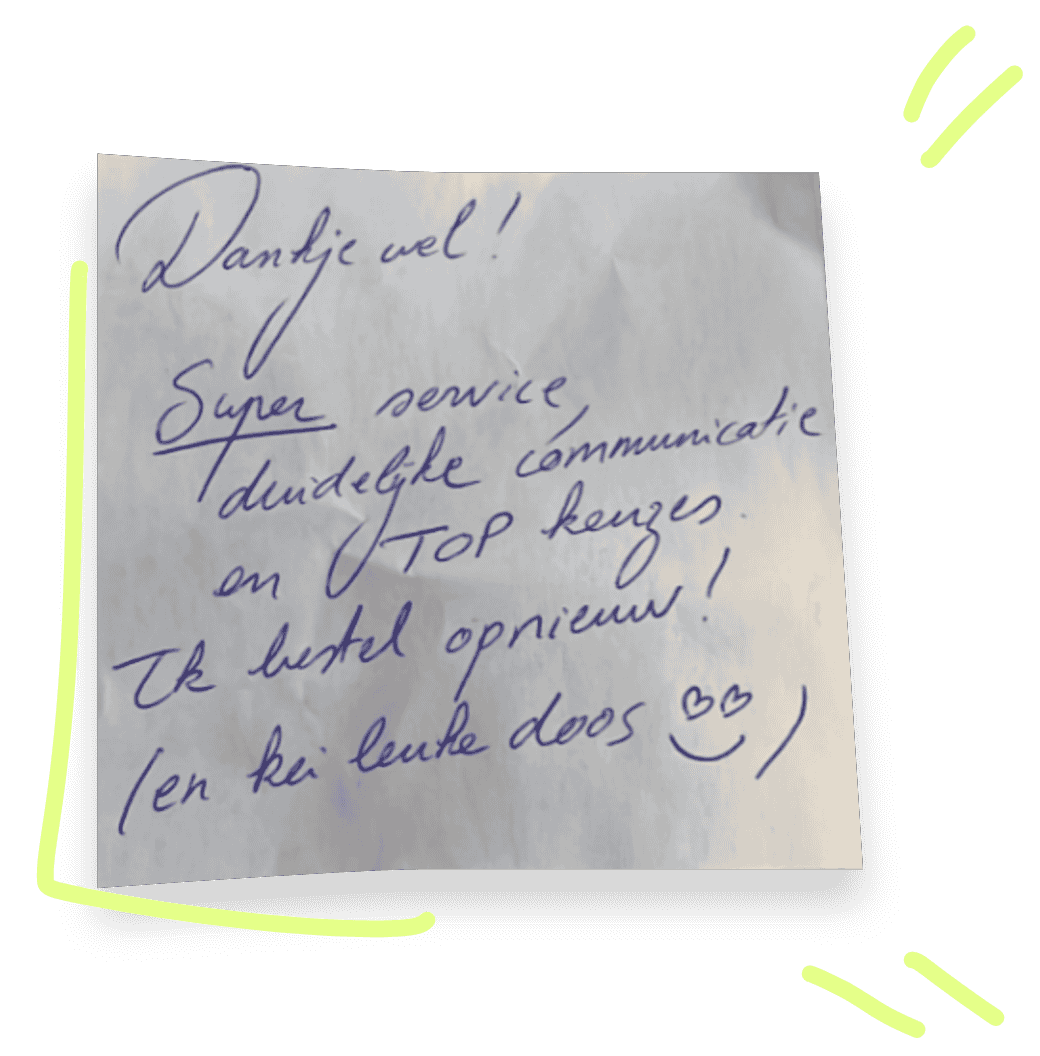 Dankje wel!
Super service,
duidelijke communicatie
en TOP keuzes.
Ik bestel opnieuw!
(en kei leuke doos 😍)